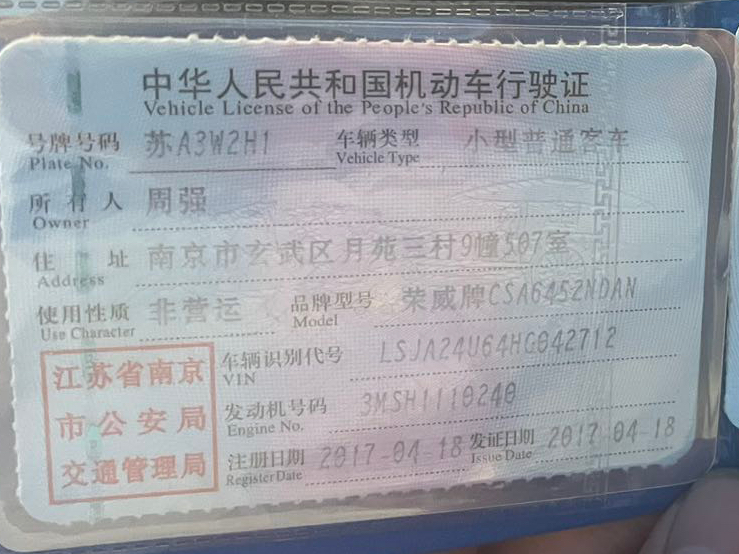 中华人民共和国机动车行驶证
Vehicle License of the People's Republic of China
号牌号码 苏A3W2H1 车辆类型 小型普通客车
Plate No. Vehicle Type
所有人 周强
Owner
住址 南京市玄武区月苑三村9幢507室
Address
使用性质 非营运 品牌型号 荣威牌CSA6452NDAN
Use Character Model
江苏省南京
市公安局
交通管理局
车辆识别代号 LSJA24U64HG042712
VIN
发动机号码 3MSH1110240
Engine No.
注册日期 2017-04-18 发证日期 2017-04-18
Register Date Issue Date